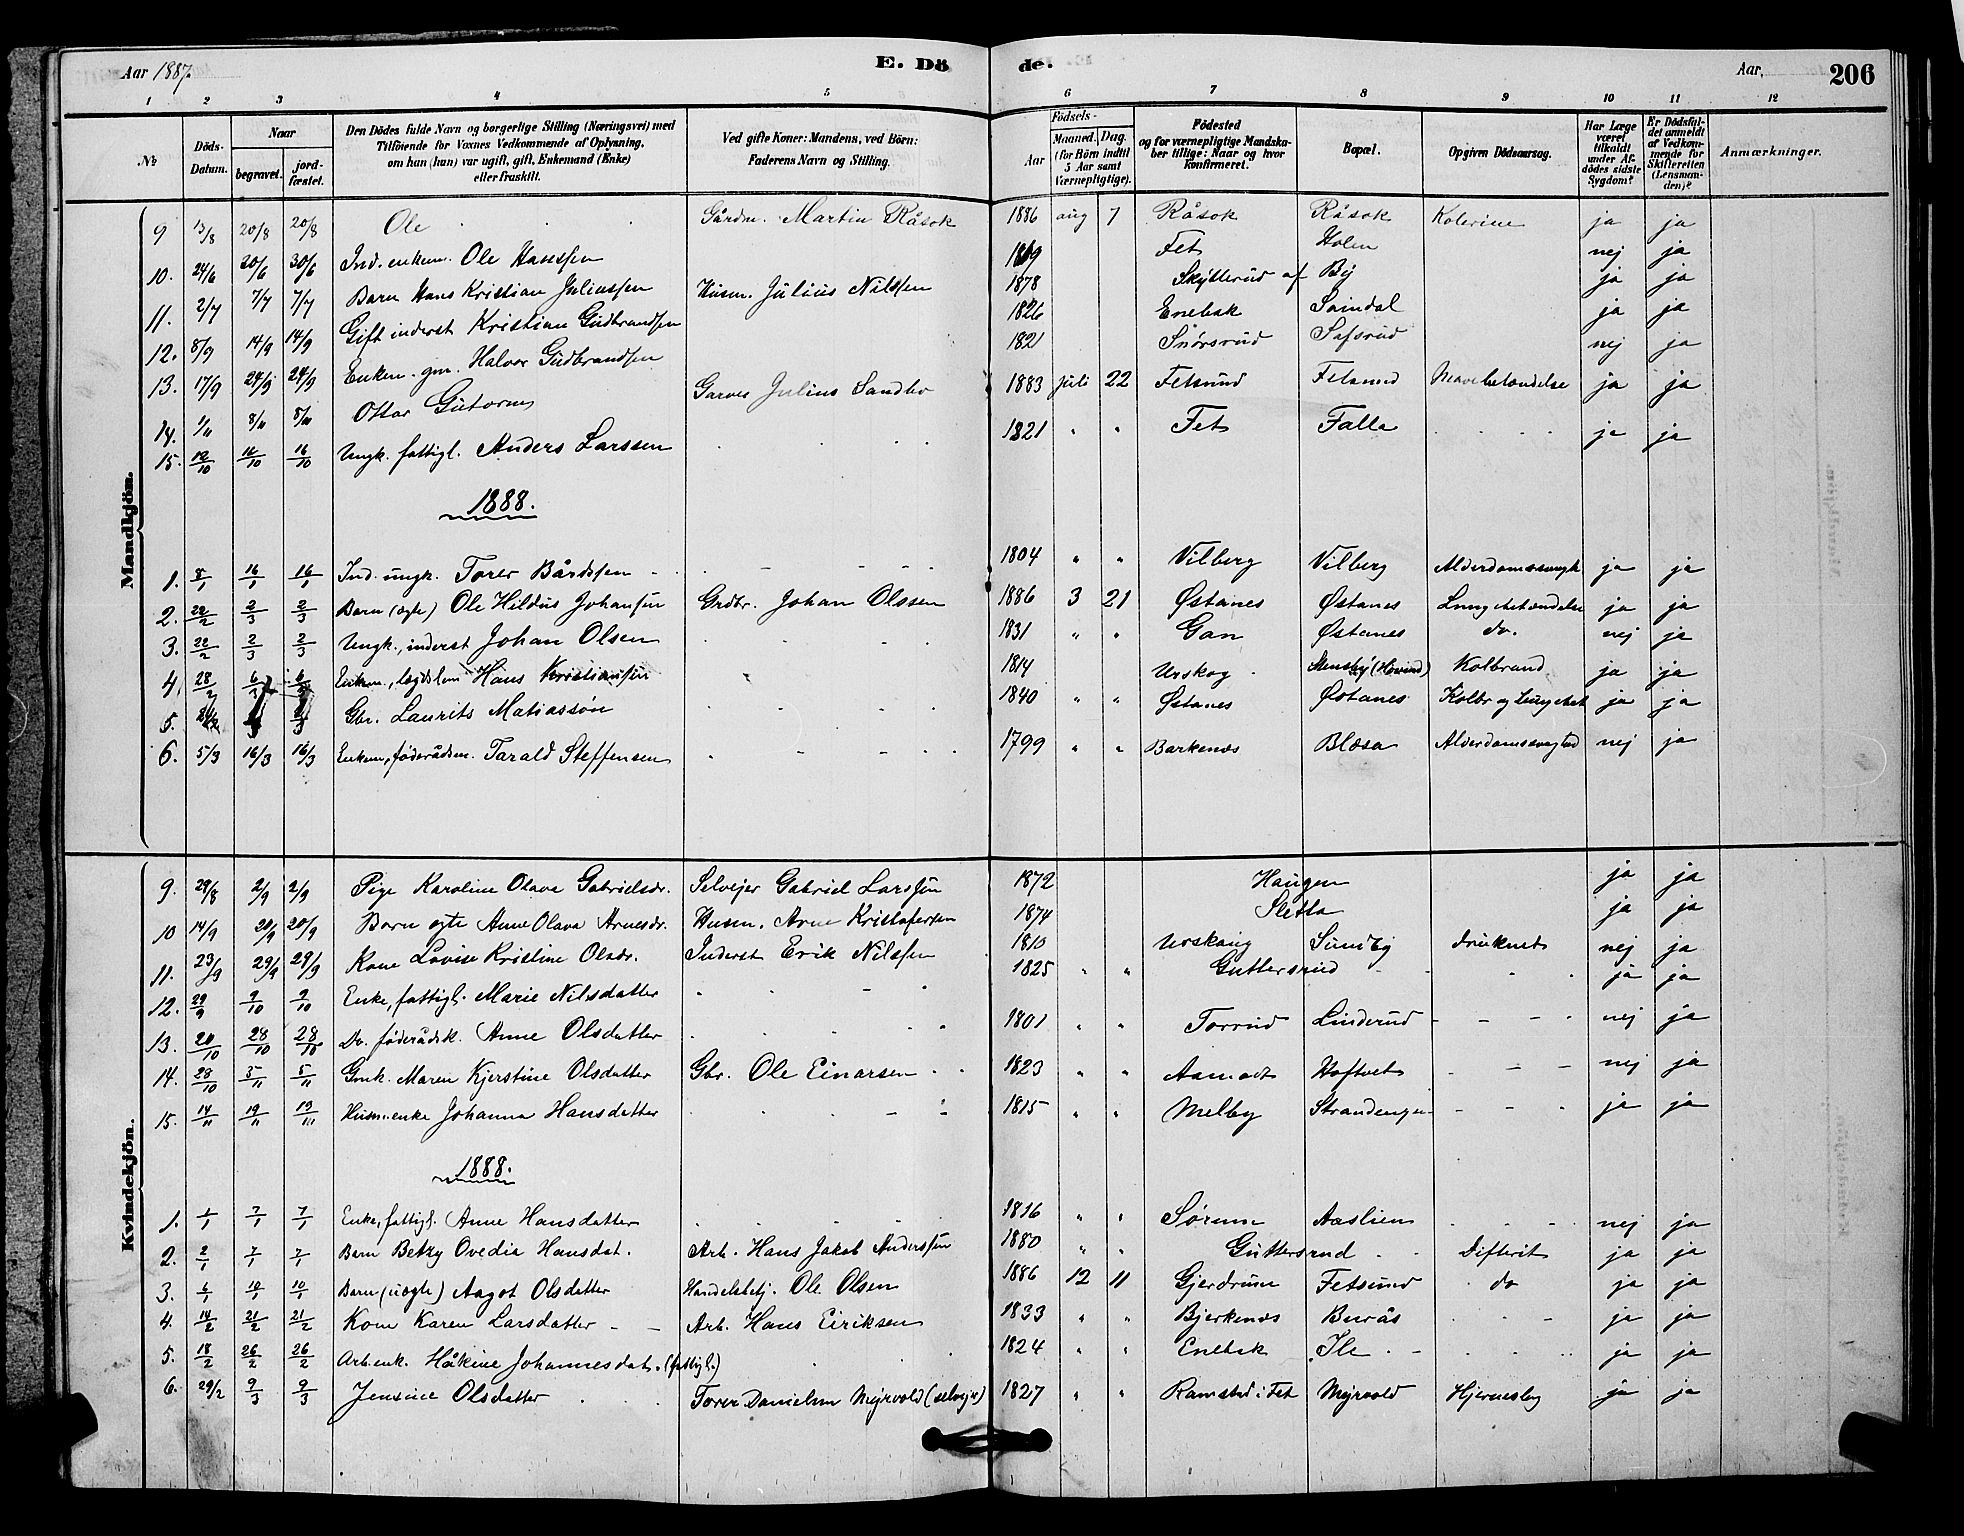 Aar 1887. E. Dö de. Aar, 206
1 2 3 4 5 6 7 8 9 10 11 12
No Döds-Datum. Naar begravet. jordfæstet. Den Dödes fulde Navn og borgerlige Stilling (Næringsvei) med Tilföiende for Voxnes Vedkommende af Oplysning, om han (hun) var ugift, gift, Enkemand (Enke) eller fraskilt. Ved gifte Koner: Mandens, ved Börn: Faderens Navn og Stilling. Födsels- Aar Maaned. Dag. (for Börn indtil 5 Aar samt Værnepligtige). Födested og for værnepligtige Mandskaber tillige: Naar og hvor konfirmeret. Bopæl. Opgiven Dödsaarsag. Har Læge været tilkaldt under Afdödes sidste Sygdom? Er Dödsfaldet anmeldt af Vedkommende for Skifteretten (Lensmanden)? Anmærkninger.
Mandkjön.
9 13/8 20/8 20/8 Ole Gårdm. Martin Råsok 1886 aug 7 Råsok Råsok Kolerine ja ja
10. 24/6 30/6 30/6 Ind. enkem. Ole Hansen Fet Holen nej ja
11. 2/7 7/7 7/7 Barn Hans Kristian Juliussen Husm. Julius Nilssen 1878 Skytterud af By ja ja
12. 8/9 14/9 14/9 Gift inderst Kristian Gudbrandsen 1826 Enebak ja ja
13. 17/9 24/9 24/9 Enkem. gm. Halvor Gudbrandsen 1821 nej ja
14. 1/11 8/11 8/11 Ottar Gutorm Garver Julius Sandbo 1883 juli 22 Fetsund Fetsund Mavebetændelse ja ja
15. 12/10 16/10 16/10 Ungk. fattigl. Anders Larssen 1821 " " Fet Falla ja ja
1888.
1. 8/1 16/1 16/1 Ind. ungk. Torer Bårdssen 1804 " " Vilberg Vilberg Alderdomssvagh ja ja
2. 22/2 2/3 2/3 Barn (ægte) Ole Hildus Johansen Grdbr. Johan Olssen 1886 3 21 Østanes Østanes Lungebetændelse ja ja
3. 22/2 2/3 2/3 Ungk., inderst Johan Olsen 1831 " " Gan Østanes do. nej ja
4. 28/2 6/3 6/3 Enkem., lægdslem Hans Kristiansen 1814 Urskog Stensby (Hovind) Kolbrand ja ja
5. Gbr. Laurits Matiassøn 1840 " " Østanes Østanes Kolbr og Lungebet ja ja
6. 5/3 16/3 16/3 Enkem., føderådsm. Tarald Steffensen 1799 " " Barkenæs Blæsa Alderdomssvaghed nej ja
Kvindekjön.
9. 29/8 2/9 2/9 Pige Karoline Olava Gabrielsdr. Selvejer Gabriel Larssen 1872 Haugen ja ja
10 14/9 20/9 20/9 Barn ægte Anne Olava Arnesdr. Husm. Arne Kristofersen 1874 Sletta ja ja
11. 23/9 29/9 29/9 Kone Lovise Kristine Olsdr. Inderst Erik Nilssen 1810 Urskoug Sundby druknet nej ja
12. 29/9 9/10 9/10 Enke, fattigl. Marie Nilsdatter 1825 " " Guttersrud ja ja
13. 20/10 28/10 28/10 Do. føderådsk. Anne Olsdatter 1801 " " Torrud Linderud nej ja
14. 28/10 5/11 5/11 Gmk. Maren Kjerstine Olsdatter Gbr. Ole Einarsen 1823 " " Aamodt Hoftvet nej ja
15. 14/11 19/11 19/11 Husm.enke Johanna Hansdatter 1815 " " Melby Strandengen ja ja
1888.
1. 1/1 7/1 7/1 Enke, fattigl. Anne Hansdatter 1816 " " Sørum Aaslien nej ja
2. 2/1 7/1 7/1 Barn Betzy Ovedia Hansdat. Arb. Hans Jakob Anderssen 1880 " " Guttersrud Difterit ja ja
3. 6/1 10/1 10/1 Barn (uægte) Aagot Olsdatter Handelsbetj. Ole Olsen 1886 12 11 Gjerdrum Fetsund do ja ja
4. 14/2 21/2 21/2 Kone Karen Larsdatter Arb. Hans Eiriksen 1833 " " Bjerkenæs Burås ja ja
5. 18/2 26/2 26/2 Arb.enk. Håkine Johannesdat. (fattigl.) 1824 " " Enebak Ile ja ja
6. 29/2 9/3 9/3 Jensine Olsdatter Torer Danielsen Myrvold (selvejer) 1827 " " Ramstad i Fet Myrvold Hjerneslag ja ja